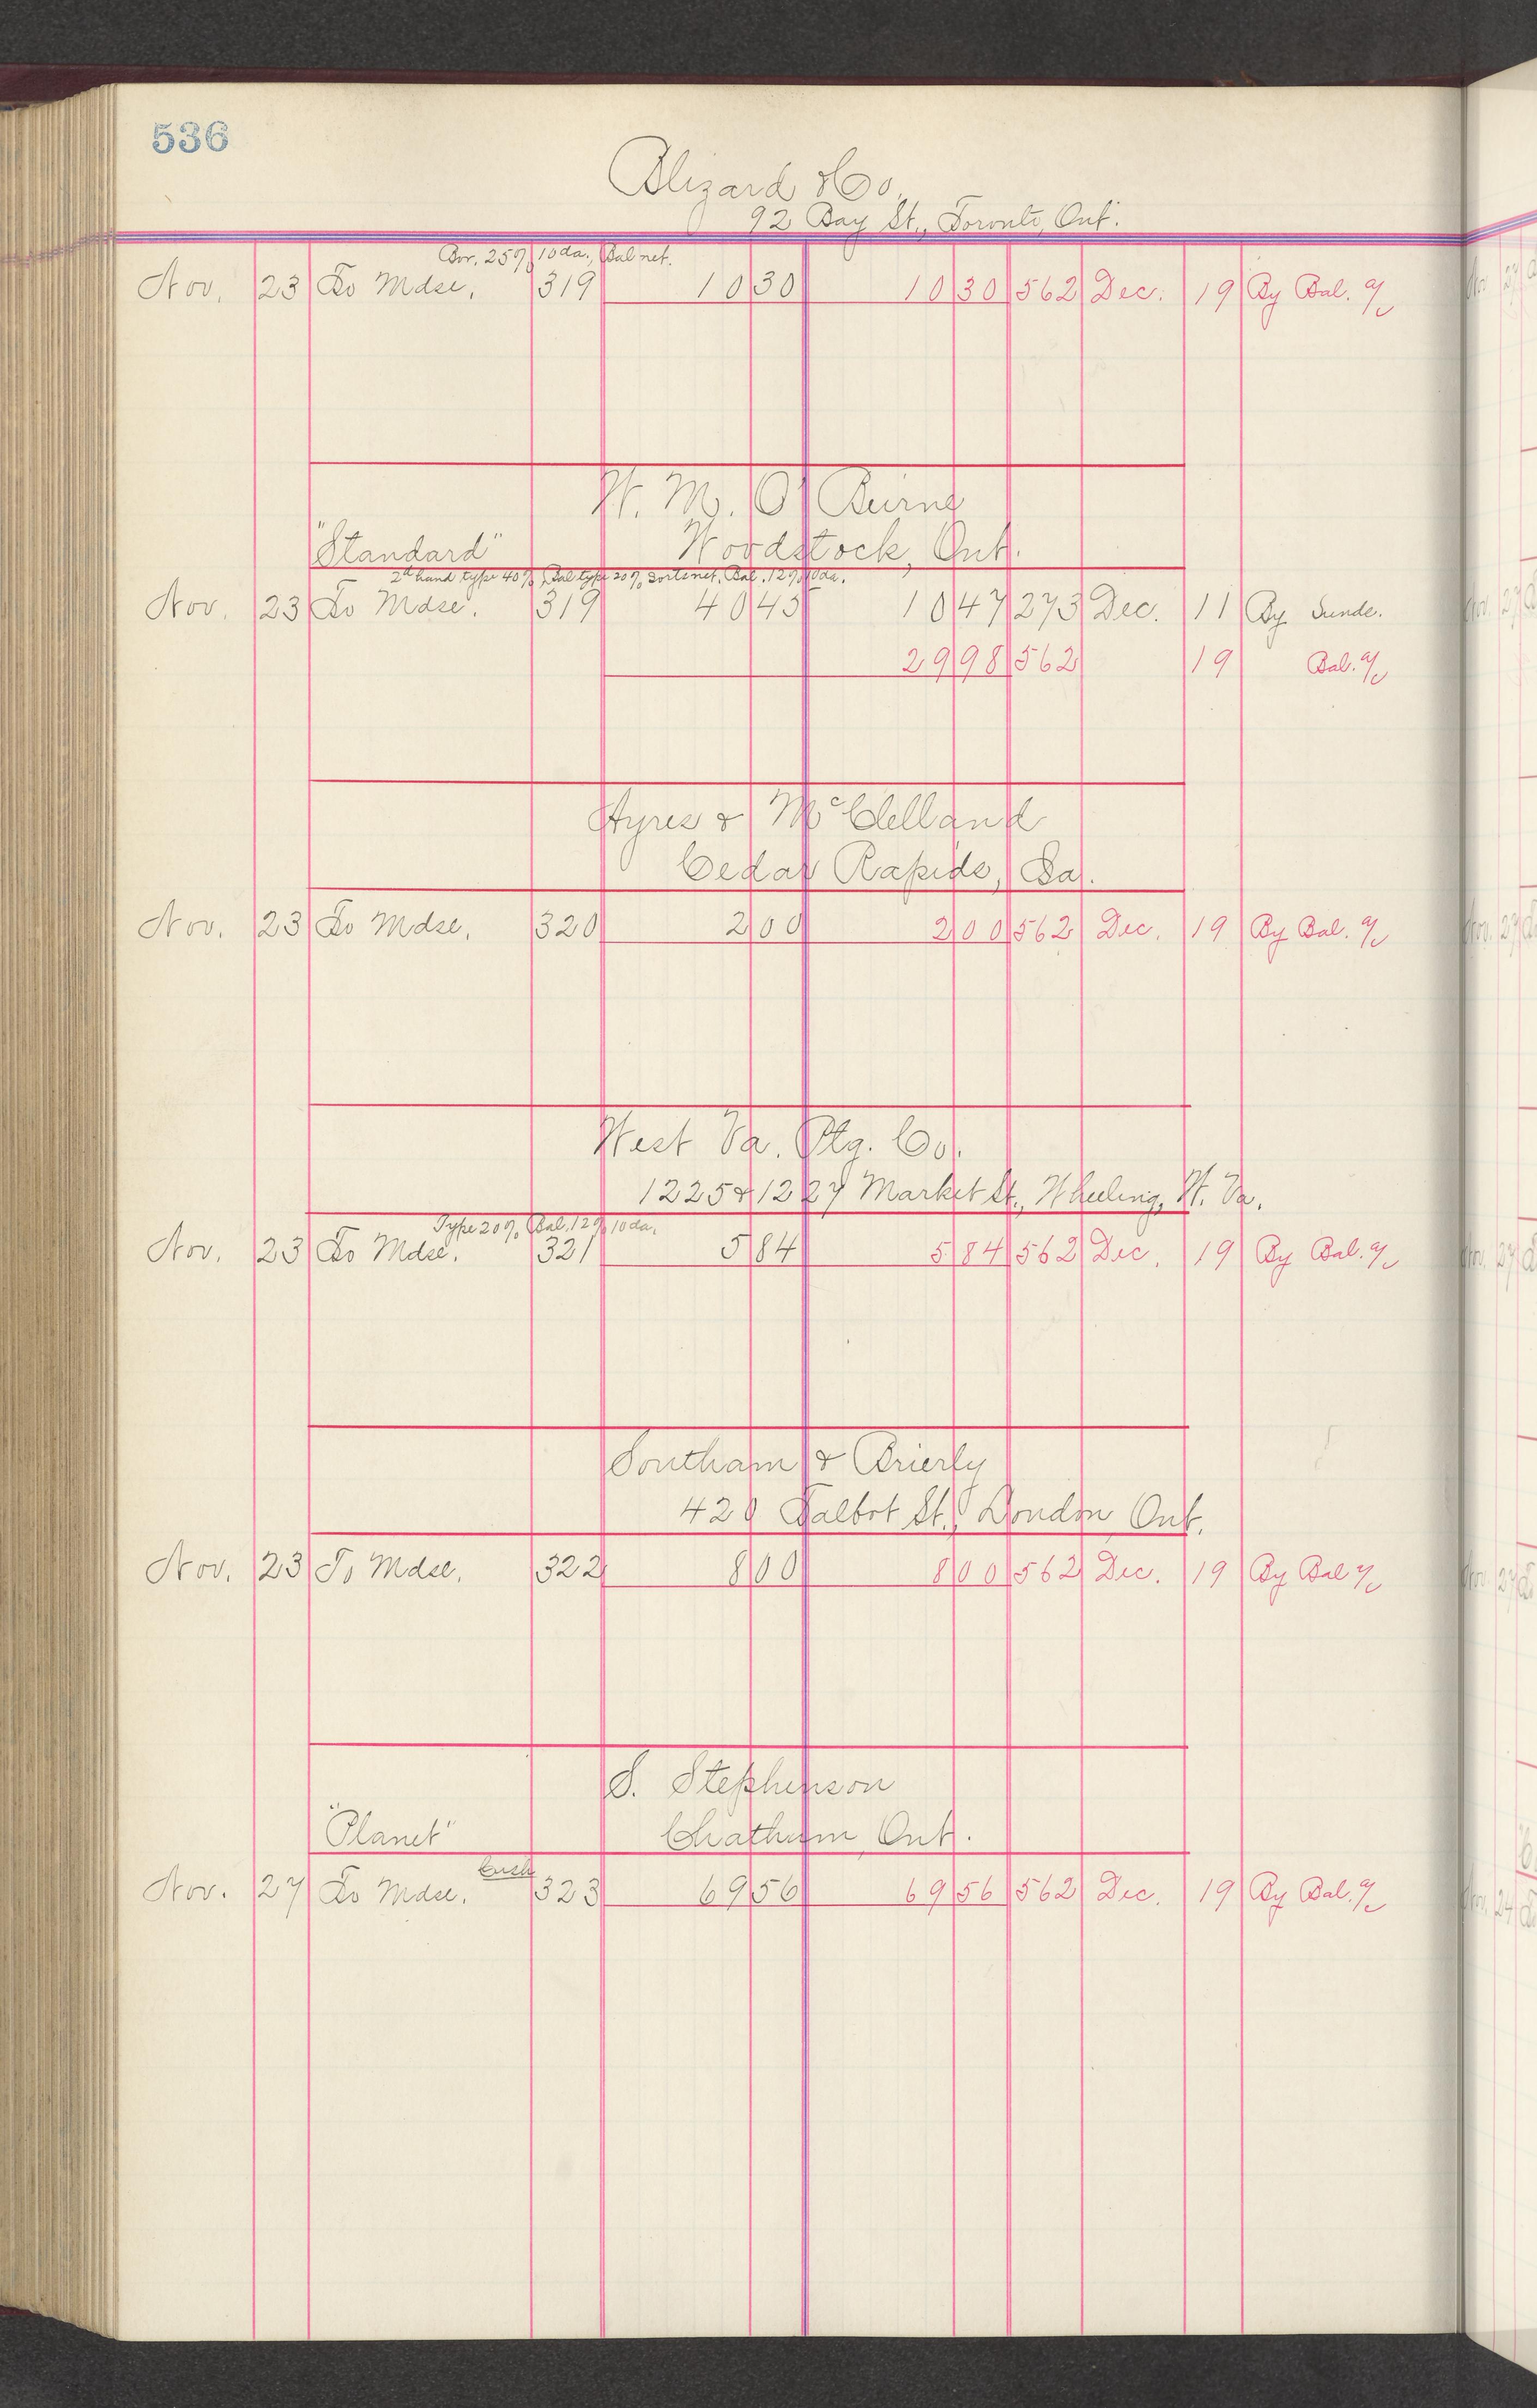 536
Blizard & Co.
92 Bay St., Toronto, Ont.
Bor. 25%, 10 da., Bal net.
Nov. 23 To Mdse. 319 10 30 10 30 562 Dec. 19 By Bal. a/c
W. M. O'Beirne
"Standard" Woodstock, Ont.
2d hand type 40%, Bal type 20%, sorts net, Bal. 12%, 10 da.
Nov. 23 To Mdse. 319 40 45 10 47 273 Dec. 11 By Sunds.
29 98 562 19 Bal. a/c
Ayres & McClelland
Cedar Rapids, Ia.
Nov. 23 To Mdse. 320 2 00 2 00 562 Dec. 19 By Bal. a/c
West Va. Ptg. Co.
1225 & 1227 Market St., Wheeling, W. Va.
Type 20%, Bal. 12%, 10 da.
Nov. 23 To Mdse. 321 5 84 5 84 562 Dec. 19 By Bal. a/c
Southam & Brierly
420 Talbot St., London Ont.
Nov. 23 To Mdse. 322 8 00 8 00 562 Dec. 19 By Bal a/c
S. Stephenson
"Planet" Chatham, Ont.
Cash
Nov. 27 To Mdse. 323 69 56 69 56 562 Dec. 19 By Bal. a/c